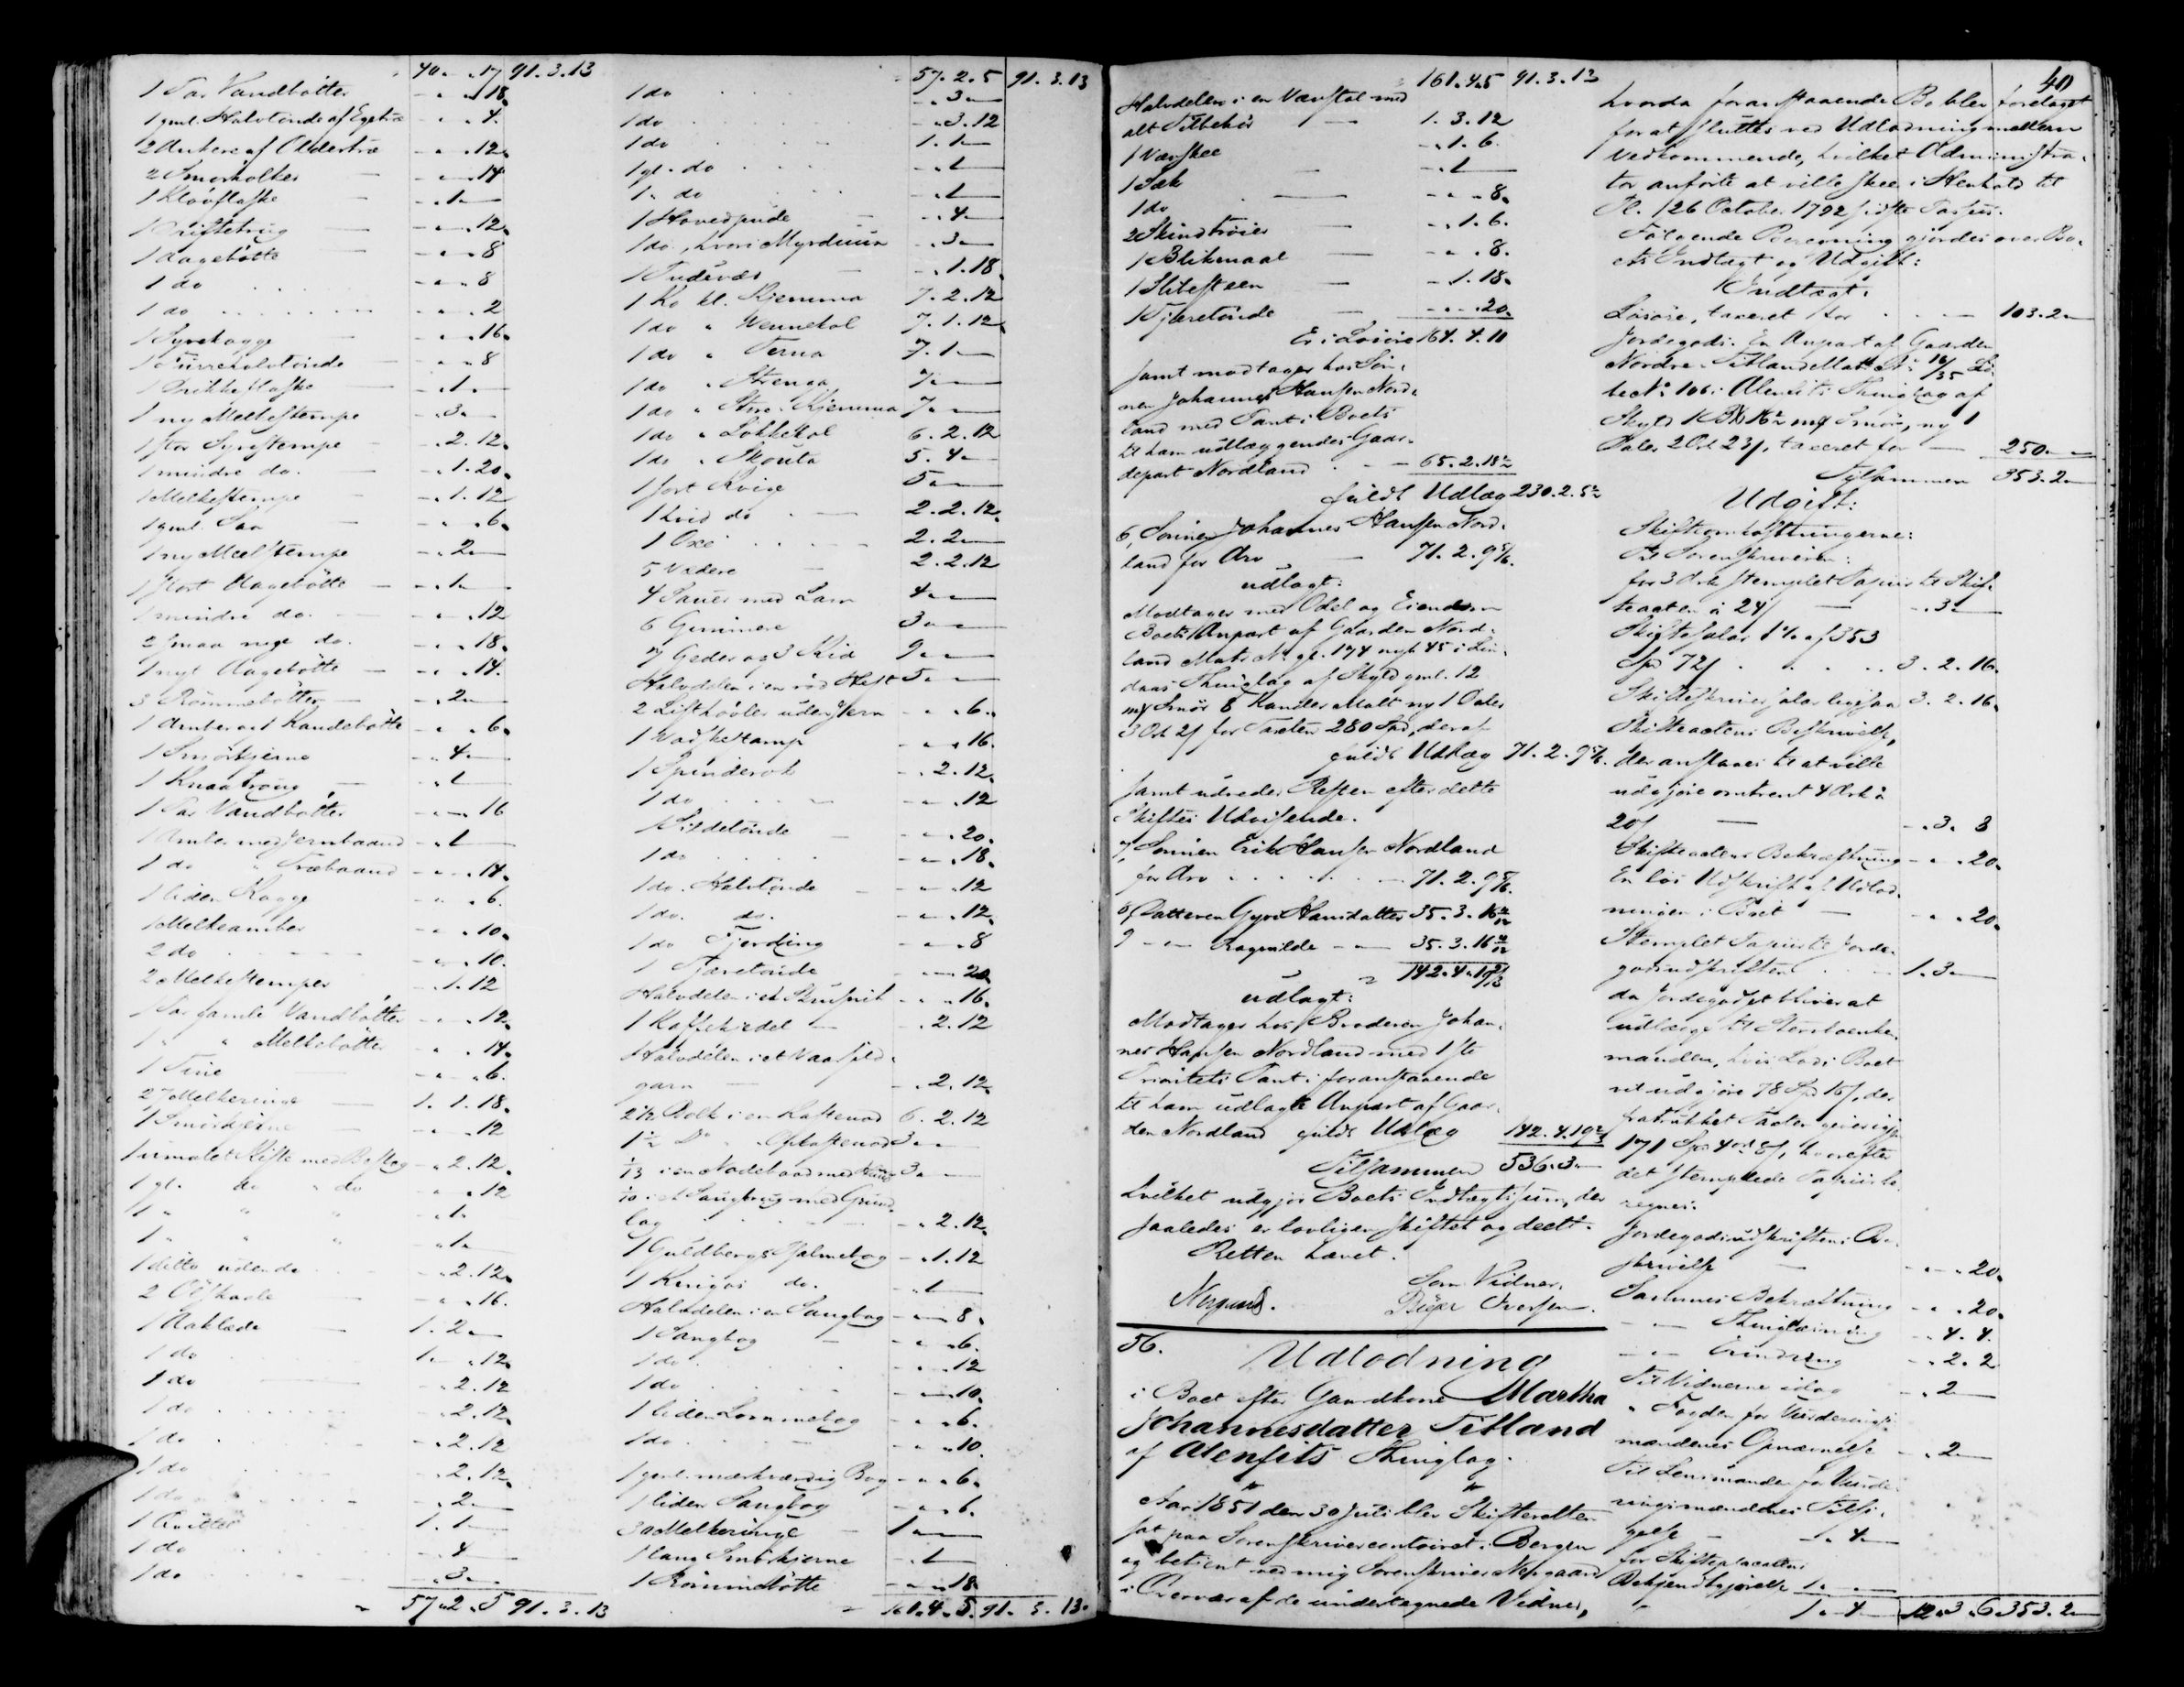 40. „ 17 91. 3. 13
1 Par Vandbøtter - „ „ 18.
1 gml. Halvtønde af Egetræ - „ „ 4.
2 Ambere af Oldertræ - „ „ 12.
2 Smørholker - „ „ 14
1 Kløvflaske - „ 1. -
1 Sigtetrug - „ „ 12.
1 Aagebøtte - „ „ 8
1 do - „ „ 8
1 do - „ „ 2
1 Syrekagge - „ „ 16.
1 Tørreholvtønde - „ „ 8
1 Drikkeflaske - „ 1. -
1 ny Melkestempe - „ 3. -
1 stor Syrestempe - „ 2. 12.
1 mindre do. - „ 1. 20.
1 Melkestempe - „ 1. 12
1 gml. Saa - „ „ 6.
1 ny Melkstempe - „ 2. -
1 stort Aagebøtte - „ 1. -
1 mindre do. - „ „ 12
2 smaa nye do. - „ „ 18.
1 nyt Aagebøtte - „ „ 14.
3 Rømmebøtter - „ 2. -
1 Amber og 1 Kandebøtte - „ „ 6.
1 Smørkjerne - „ 4. -
1 Knaatroug - „ 1. -
1 Par Vandbøtter - „ „ 16
1 Amber med Jernbaand - „ 1. -
1 do „ Træbaand - „ „ 14.
1 liden Kagge - „ „ 6.
1 Melkeamber - „ „ 10.
2 do - „ „ 10.
2 Melkestemper - „ 1. 12
1 Par gamle Vandbøtter - „ „ 12.
1 „ „ Melkebøtter - „ „ 14.
1 Tine - „ „ 6.
27 Melkeringe 1. 1. 18.
1 Smørkjerne - „ „ 12
1 umalet Kiste med Beslag - „ 2. 12.
1 gl. do „ do - „ „ 12
1 „ „ „ - „ 1. -
1 „ „ „ - „ 1. -
1 ditto uden do - „ 2. 12.
2 Øltkade - „ „ 16.
1 Aaklæde 1. 2. -
1 do 1. „ 12.
1 do - „ 2. 12
1 do - „ 2. 12.
1 do - „ 2. 12
1 do - „ 2. 12.
1 do - „ 2. -
1 Qviltel 1. 1. -
1 do - „ 4 -
1 do - „ 3. -
57. 2. 5 91. 3. 13
57. 2. 5 91. 3. 13
1 do - „ 3. -
1 do - „ 3. 12
1 do 1. 1. -
1 gl. do - „ 1 -
1 „ do - „ 1 -
1 Hovedpude - „ 4. -
1 do „ hvori Myrduun - „ 3. -
1 Pudevær - „ 1. 18.
1 Ko kl. Kjemma 7. 2. 12
1 do „ Vennekol 7. 1. 12.
1 do „ Terna 7. 1. -
1 do „ Strenga 7. -
1 do „ Store Kjemma 7. -
1 do „ Løkkekol 6. 2. 12
1 do „ Skouta 5. 4. -
1 sort Kvige 5. -
1 hvid do 2. 2. 12.
1 Oxe 2. 2. -
5 Vædere 2. 2. 12
4 Sauer med Lam 4. -
6 Gimmere 3. -
7 Geder og 3 Kid 9. -
Halvdelen i en rød Hest 5. -
2 Listhøvler uden Jern - „ „ 6.
1 Vadskestamp - „ „ 16.
1 Spinderok - „ 2. 12.
1 do - „ „ 12
1 Sildetønde - „ „ 20.
1 do - „ „ 18.
1 do. Halvtønde - „ „ 12
1 do. do. - „ „ 12.
1 do Fjerding - „ „ 8
1 Tjæretønde - „ „ 20.
Halvdelen i et Skrufstik - „ „ 16.
1 Kaffekjedel - „ 2. 12
Halvdelen i et Vaarsild-
garn - „ 2. 12.
2½ Bolk i en Kastenod 6. 2. 12
1½ Do „ Oplastenod 3. -
⅓ i en Nodebaad med 3. -
1/10 i et Saugbrug med Grund-
lag - „ 2. 12.
1 Guldbergs Psalmebog - „ 1. 12
1 Kingos do. - „ 1 -
Halvdelen i en Sangbog - „ „ 8.
1 Sangbog - „ „ 6.
1 do - „ „ 12
1 do - „ „ 10.
1 liden Lommebog - „ „ 6.
1 do - „ „ 10.
1 gml. mærkværdig Bog - „ „ 6.
1 liden Sangbog - „ „ 6.
30 Melkeringe 1. -
1 lang Smørkjerne - „ 1 -
1 Rømmebøtte - „ „ 18.
161. 4. 5. 91. 3. 13.
161. 4. 5 91. 3. 13
Halvdelen i en Vævstol med
alt Tilbehør 1. 3. 12
1 Vævskee - „ 1. 6.
1 Sæk - „ 1 -
1 do - „ „ 8.
2 Skindtrøier - „ 1. 6.
1 Blikmaal - „ „ 8.
1 Slibesteen - 1. 18.
1 Tjæretønde - „ „ 20.
Er i Løsøre 164. 4. 10
samt modtager hos Søn-
nen Johannes Hansen Nord-
land med Pant i Boets
til ham udlæggendes Gaar-
depart Nordland 65. 2. 18½
fuldt Udlæg 230. 2. 5½
6, Sønnen Johannes Hansen Nord-
land for Arv 71. 2. 9 5/6.
udlagt:
Modtager med Odel og Eiendom
Boets Anpart af Gaarden Nord-
land Matr. No. gl. 174 nyt 45 i Lin-
daas Thinglag af Skyld gml. 12
mk Smør 8 Kander Malt ny 1 Daler
3 Ort 2 s for Taxten 280 Spd, deraf
fuldt Udlæg 71. 2. 9 5/6.
samt udreder Resten efter dette
Skiftes Udvisende.
7, Sønnen Erik Hansen Nordland
for Arv 71. 2. 9 5/6.
8, Datteren Gyri Hansdatter 35. 3. 16 11/12
9 - „ Ragnilde - „ 35. 3. 16 11/12
142. 4. 19 8/12
udlagt:
Modtager hos Broderen Johan-
nes Hansen Nordland med 1ste
Prioritets Pant i foranstaaende
til ham udlagte Anpart af Gaar-
den Nordland fuldt Udlæg 142. 4. 19⅔
Tilsammen 536. 3. -
hvilket udgjør Boets Indtægtssum, der
saaledes er lovligen skiftet og deelt.
Retten hævet.
Som Vidner.
Neergaard. Iversen.
56.
Udlodning
i Boet efter Gaardkone Martha
Johannesdatter Titland
af Alenfits Thinglag.
Aar 1851 den 30 Juli blev Skifteretten
sat paa Sorenskrivercontoiret i Bergen
og betjent ved mig Sorenskriver Neergaard
i Overvær af de undertegnede Vidner,
40
hvorda foranstaaende Bo blev foretaget
for at sluttes ved Udlodning mellem
Vedkommende, hvilket Administra-
tor anførte at ville skee i Henhold til
Pl. 126 October 1792 sidste Passus.
Følgende Beregning gjordes over Bo-
ets Indtægt og Udgift:
Indtægt.
Løsøre, taxeret for 103. 2. -
Jordegods. En Anpart af Gaarden
Nordre Titland Matr. No. 16/35 Lø-
be No. 106 i Alenfits Thinglag af
Skyld 1 Pd 16½ mk Smør, ny 1
Daler 2 Ort 23 s, taxeret for 250. -
Tilsammen 353. 2. -
Udgift:
Skifteomkostningerne:
Til Sorenskriveren:
for 3 Ark stemplet Papiir til Skif-
teacten à 24 s - „ 3. -
Skiftesalær 1% af 353
Spd 72 s 3. 2. 16.
Skifteskriversalær ligesaa 3. 2. 16.
Skifteactens Beskrivelse,
der ansaaes til at ville
udgjøre omtrent 4 Ark à
20 s - „ 3. 8
Skifteactens Bekræftning - „ „ 20.
En løs Udskrift af Udlod-
ningen i Boet - „ „ 20.
Stemplet Papiir til Jorde-
godsudskriften 1. 3. -
da Jordegodset bliver at
udlægge til Sterboenke-
manden, hvis Lod i Boet
vil udgjøre 78 Spd 15 s, der
fratrukket Taxten giver igjen
171 Spd 4 ort 5 s, hvorefter
det stemplede Papiir be-
regnes.
Jordegodsudskriftens Be-
skrivelse - „ „ 20.
Sammes Bekræftning - „ „ 20.
- „ Thinglæsning - „ 4. 4.
- „ - „ 2. 2
Til Vidnerne idag - „ 2 -
„ Fogden for Vurderings-
mændenes Opnævnelse - „ 2 -
Til Lensmanden for Vurde-
ringsmændenes Tilsi-
gelse 1. 4. -
for Skifteplacaters
Bekjendtgjørelse 1. -
1. 4 - 12. 3. 6 353. 2 -